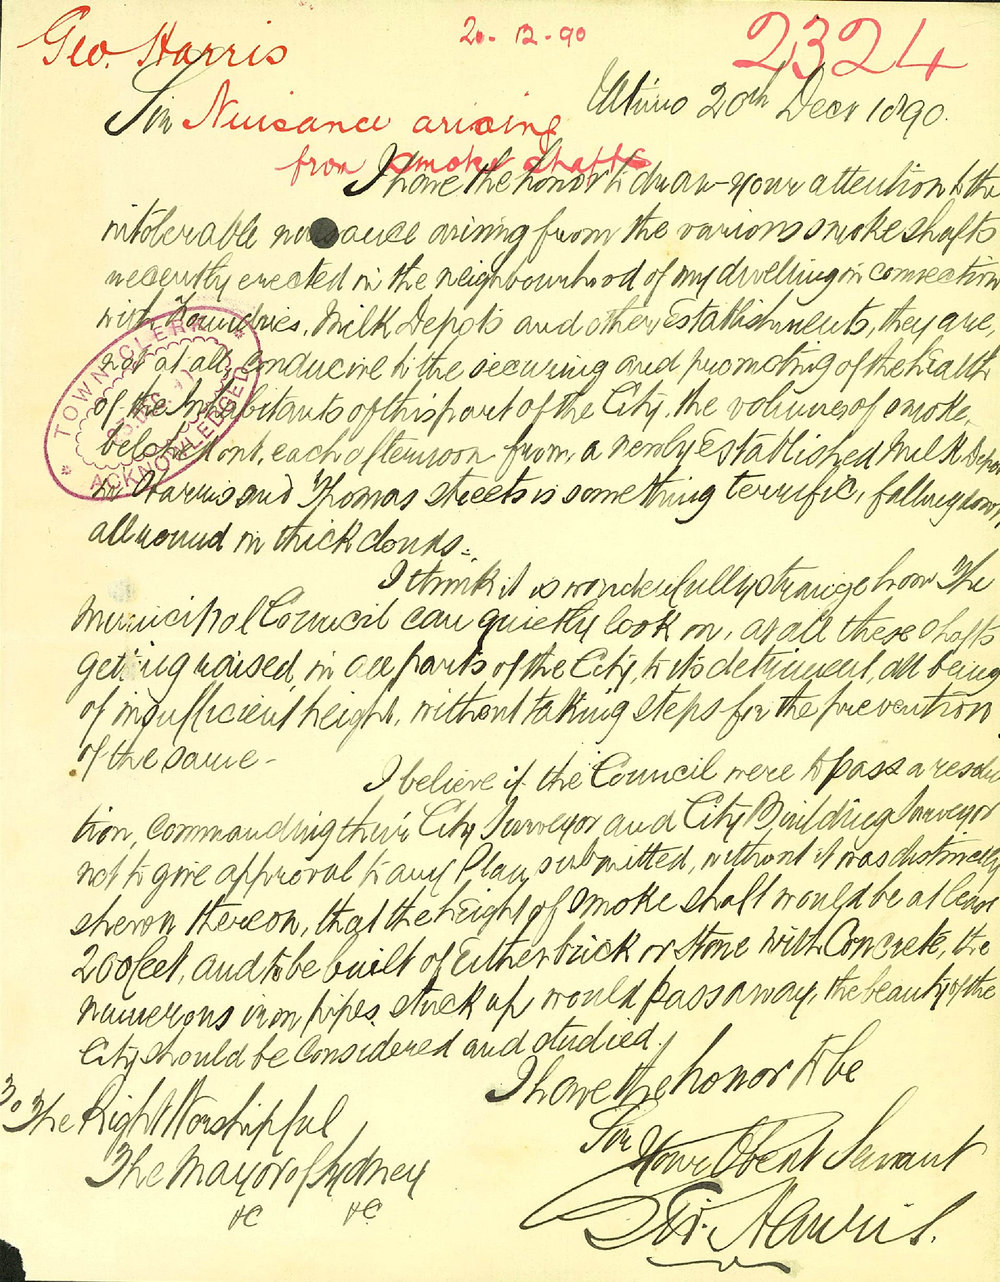 Geo. Harris
20-12-90
2324
Ultimo 20th Decr 1890.
Sir
Nuisance arising
from smoke shafts
I have the honor to draw your attention to the
intolerable nuisance arising from the various smoke shafts
recently erected in the neighbourhood of my dwelling in connection
with Foundries, Milk Depots and other Establishments, they are,
not at all, conducive to the securing and promoting of the health
of the Inhabitants of this part of the City, the volumes of smoke,
belched out, each afternoon from, a newly Established Milk Depot
in Harris and Thomas streets is something terrific, falling down,
all round in thick clouds.
TOWN CLERK
ACKNOWLEDGED
I think it is wonderfully strange how The
Municipal Council can quietly look on, at all these shafts
getting raised, in all parts of the City, to its detriment, all being
of insufficient height, without taking steps for the prevention
of the same -
I believe if the Council were to pass a resolu
tion, commanding their City Surveyor and City Building Surveyor
not to give approval to any Plan, submitted, without it was distinctly
shewn thereon, that the height of smoke shaft would be at least
200 feet, and to be built of Either brick or stone with Concrete, the
numerous iron pipes, stuck up, would pass away, the beauty of the
City should be considered and studied.
I have the honor to be
Sir
Your Obent Servant
Geo. Harris.
To The Right Worshipful
The Mayor of Sydney
&C &C